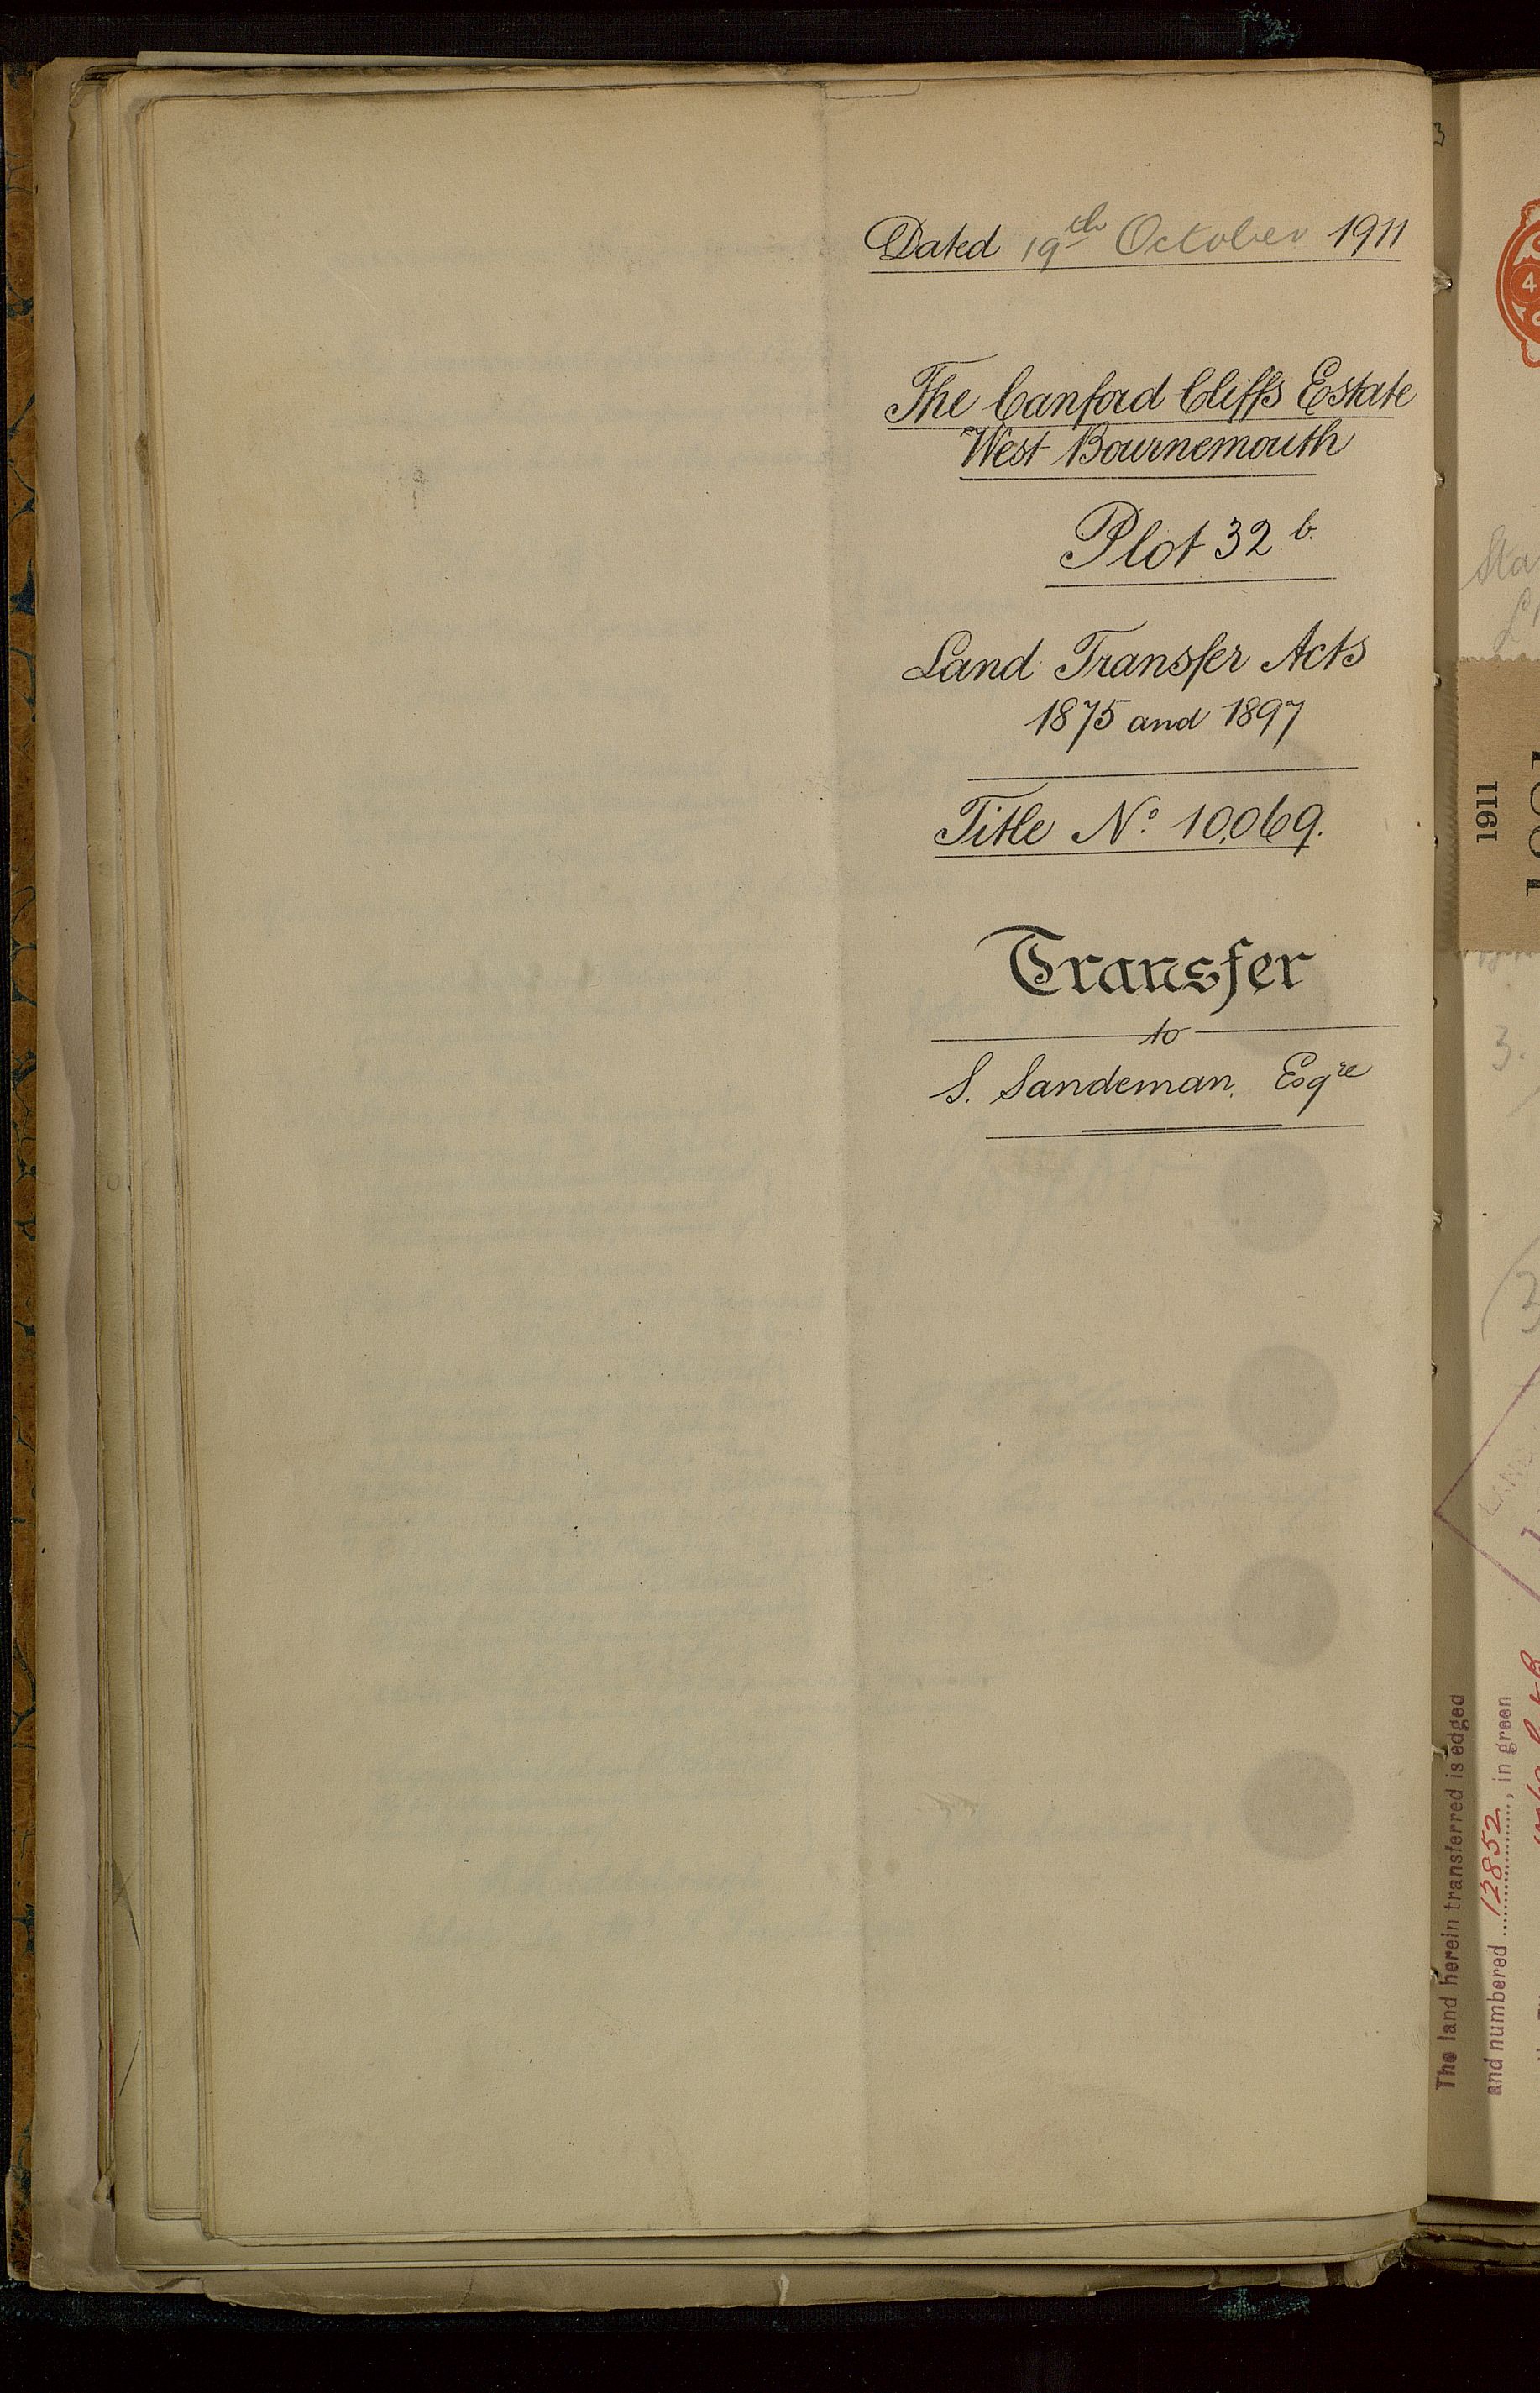 Dated 19th October 1911
The Canford Cliffs Estate
West Bournemouth
Plot 32 b.
Land Transfer Acts
1875 and 1897
Title No. 10,069.
Transfer
to
S. Sandeman, Esqre
3
Sta
1911
3.
The land herein transferred is edged
and numbered 12852, in green